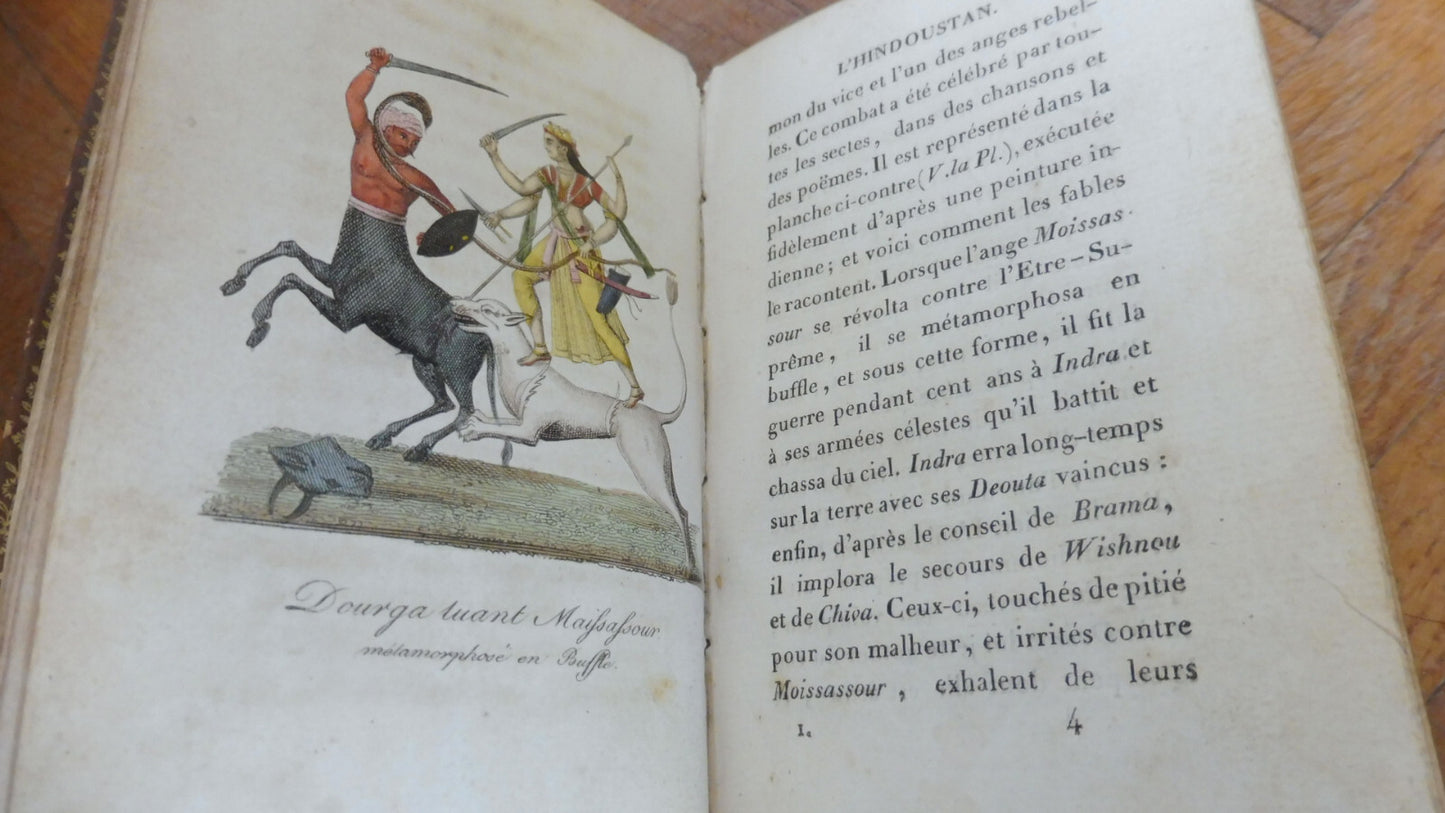 Dourga tuant Maiſsaſsour
métamorphosé en Buffle.
L'HINDOUSTAN.
mon du vice et l'un des anges rebel-
les. Ce combat a été célébré par tou-
tes les sectes, dans des chansons et
des poëmes. Il est représenté dans la
planche ci-contre (V. la Pl.), exécutée
fidèlement d'après une peinture in-
dienne; et voici comment les fables
le racontent. Lorsque l'ange Moissas-
sour se révolta contre l'Etre-Su-
prême, il se métamorphosa en
buffle, et sous cette forme, il fit la
guerre pendant cent ans à Indra et
à ses armées célestes qu'il battit et
chassa du ciel. Indra erra long-temps
sur la terre avec ses Deouta vaincus:
enfin, d'après le conseil de Brama,
il implora le secours de Wishnou
et de Chiva. Ceux-ci, touchés de pitié
pour son malheur, et irrités contre
Moissassour, exhalent de leurs
I. 4